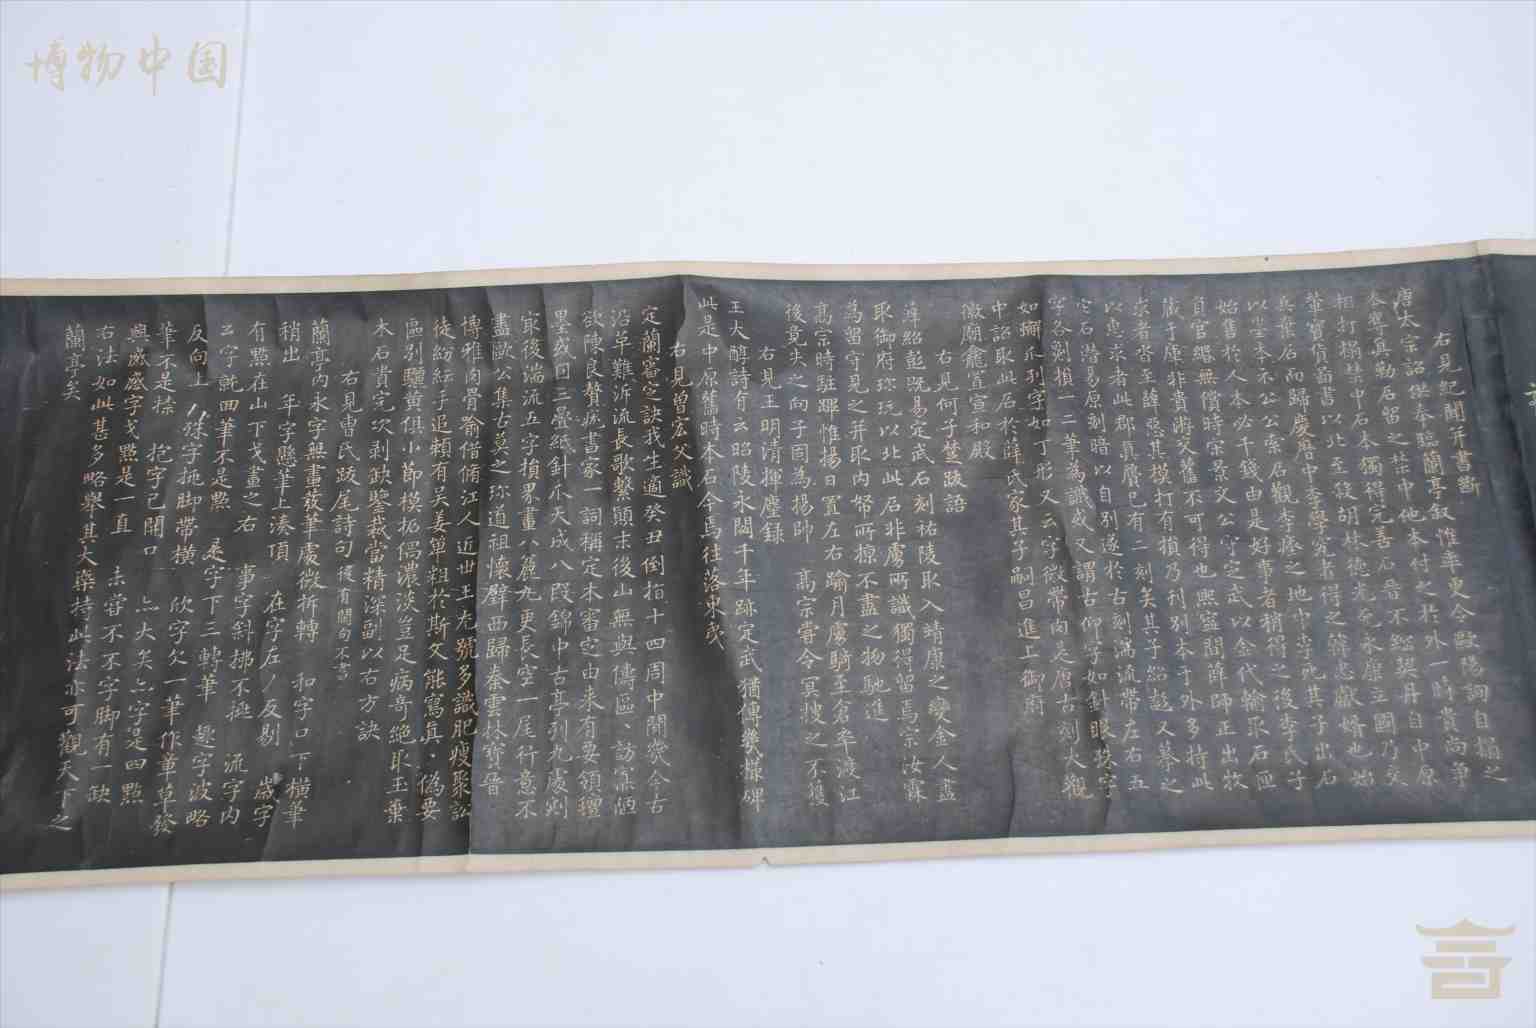 博物中国
右見起聞并書斷
唐太宗詔供奉臨蘭亭叙惟率更令歐陽詢自搨之
本奪真勒石留之禁中他本付之於外一時貴尚爭
相打搨禁中石本獨得完善石晉不綱契丹自中原
輦寶貨圖書以北至殺胡林德光死永康立國乃交
兵棄石而歸慶曆中李學究者得之韓忠獻婿也始
以墨本示公公索石觀李瘞之地中李死其子出石
始售於人本必千錢由是好事者稍得之後李氏子
負官緡無償時宋景文公守定武以金代輸取石匣
藏于庫非貴游交舊不可得也熙寧間薛師正出牧
求者沓至薛惡其模打有損乃刊別本于外多持此
以惠求者此郡真贗已有二刻矣其子紹彭又摹之
它石潛易原刻暗以自別遂於古刻湍流帶左右五
字各劖損一二筆為識或又謂古仰字如針眼殊字
如蠏爪列字如丁形又云字微帶肉是唐古刻大觀
中詔取此石於薛氏家其子嗣昌進上御府
徽廟龕置宣和殿
右見何子楚跋語
薛紹彭既易定武石刻祐陵取入靖康之變金人盡
取御府珍玩以北此石非虜所識獨得留焉宗汝霖
為留守見之并取內帑所掠不盡之物馳進
高宗時駐蹕惟揚日置左右踰月虜騎至倉卒渡江
後竟失之向子固為揚帥 高宗嘗令冥搜之不獲
右見王明清揮麈録
王大醇詩有云昭陵永閟千年跡定武猶傳幾樣碑
此是中原舊時本石今焉往落東夷
右見曾宏父識
定蘭審定訣我生適癸丑倒指十四周中間幾今古
沿早難泝流長歌繫顛末後山無與傳區區訪窠洒
欲陳良贅疣書家一詞稱定本審定由来有要領纏
墨或回三疊紙針爪天成八段錦中古亭列九處刓
寂後湍流五字損界畫八麄九更長空一尾行意不
盡歐公集古莫之珍道祖懷璧西歸秦雲林寶晉
博雅肉骨龠僭脩江人近世王尤號多識肥瘦聚訟
徒紛紜于追賴有吳姜單粗於斯文能寫真偽要
區別驪黃俱小節模拓偶濃淡豈足病奇絕取玉葉
木石貴完次剥缺鑒裁當精深副以右方訣
右見曹氏跋尾詩句後有闕句不書
蘭亭內永字無畫發筆處微折轉 和字口下橫筆
稍出 年字懸筆上湊頂 在字左丿反剔 歲字
有點在山下戈畫之右 事字斜拂不挑 流字内
㐬字就回筆不是點 是字下三轉筆 趣字波略
反向上 殊字挑脚帶橫 欣字欠一筆作章草發
筆不是捺 抱字已開口 亦大矣亦字是四點
興感感字戈點是一直 未嘗不不字脚有一缺
右法如此甚多略舉其大槩持此法亦可觀天下之
蘭亭矣